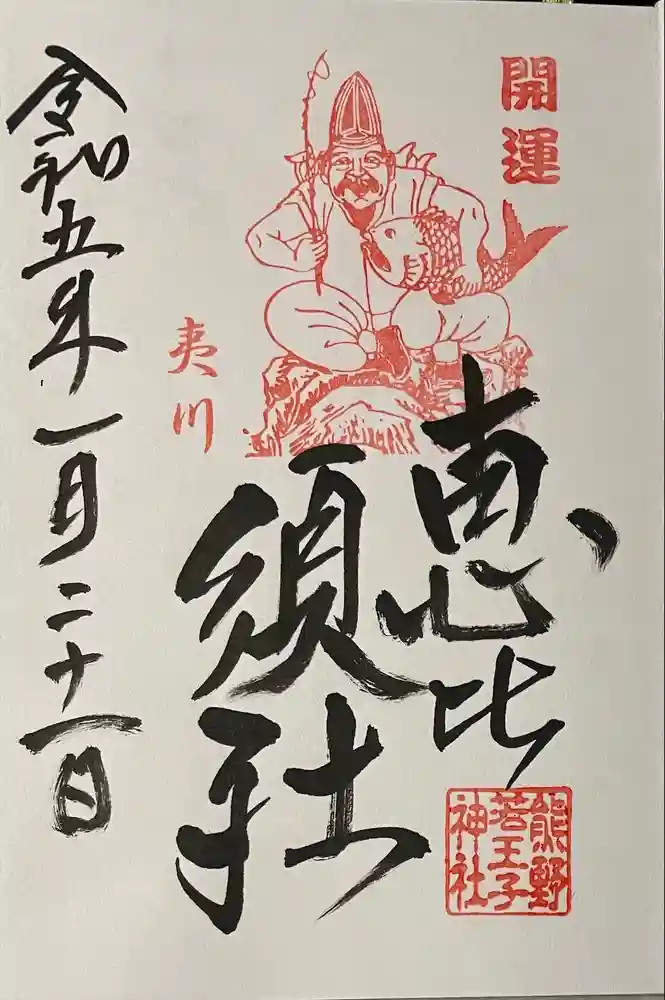 開運
恵比
須社
夷川
令和五年一月二十一日
熊野
若王子
神社